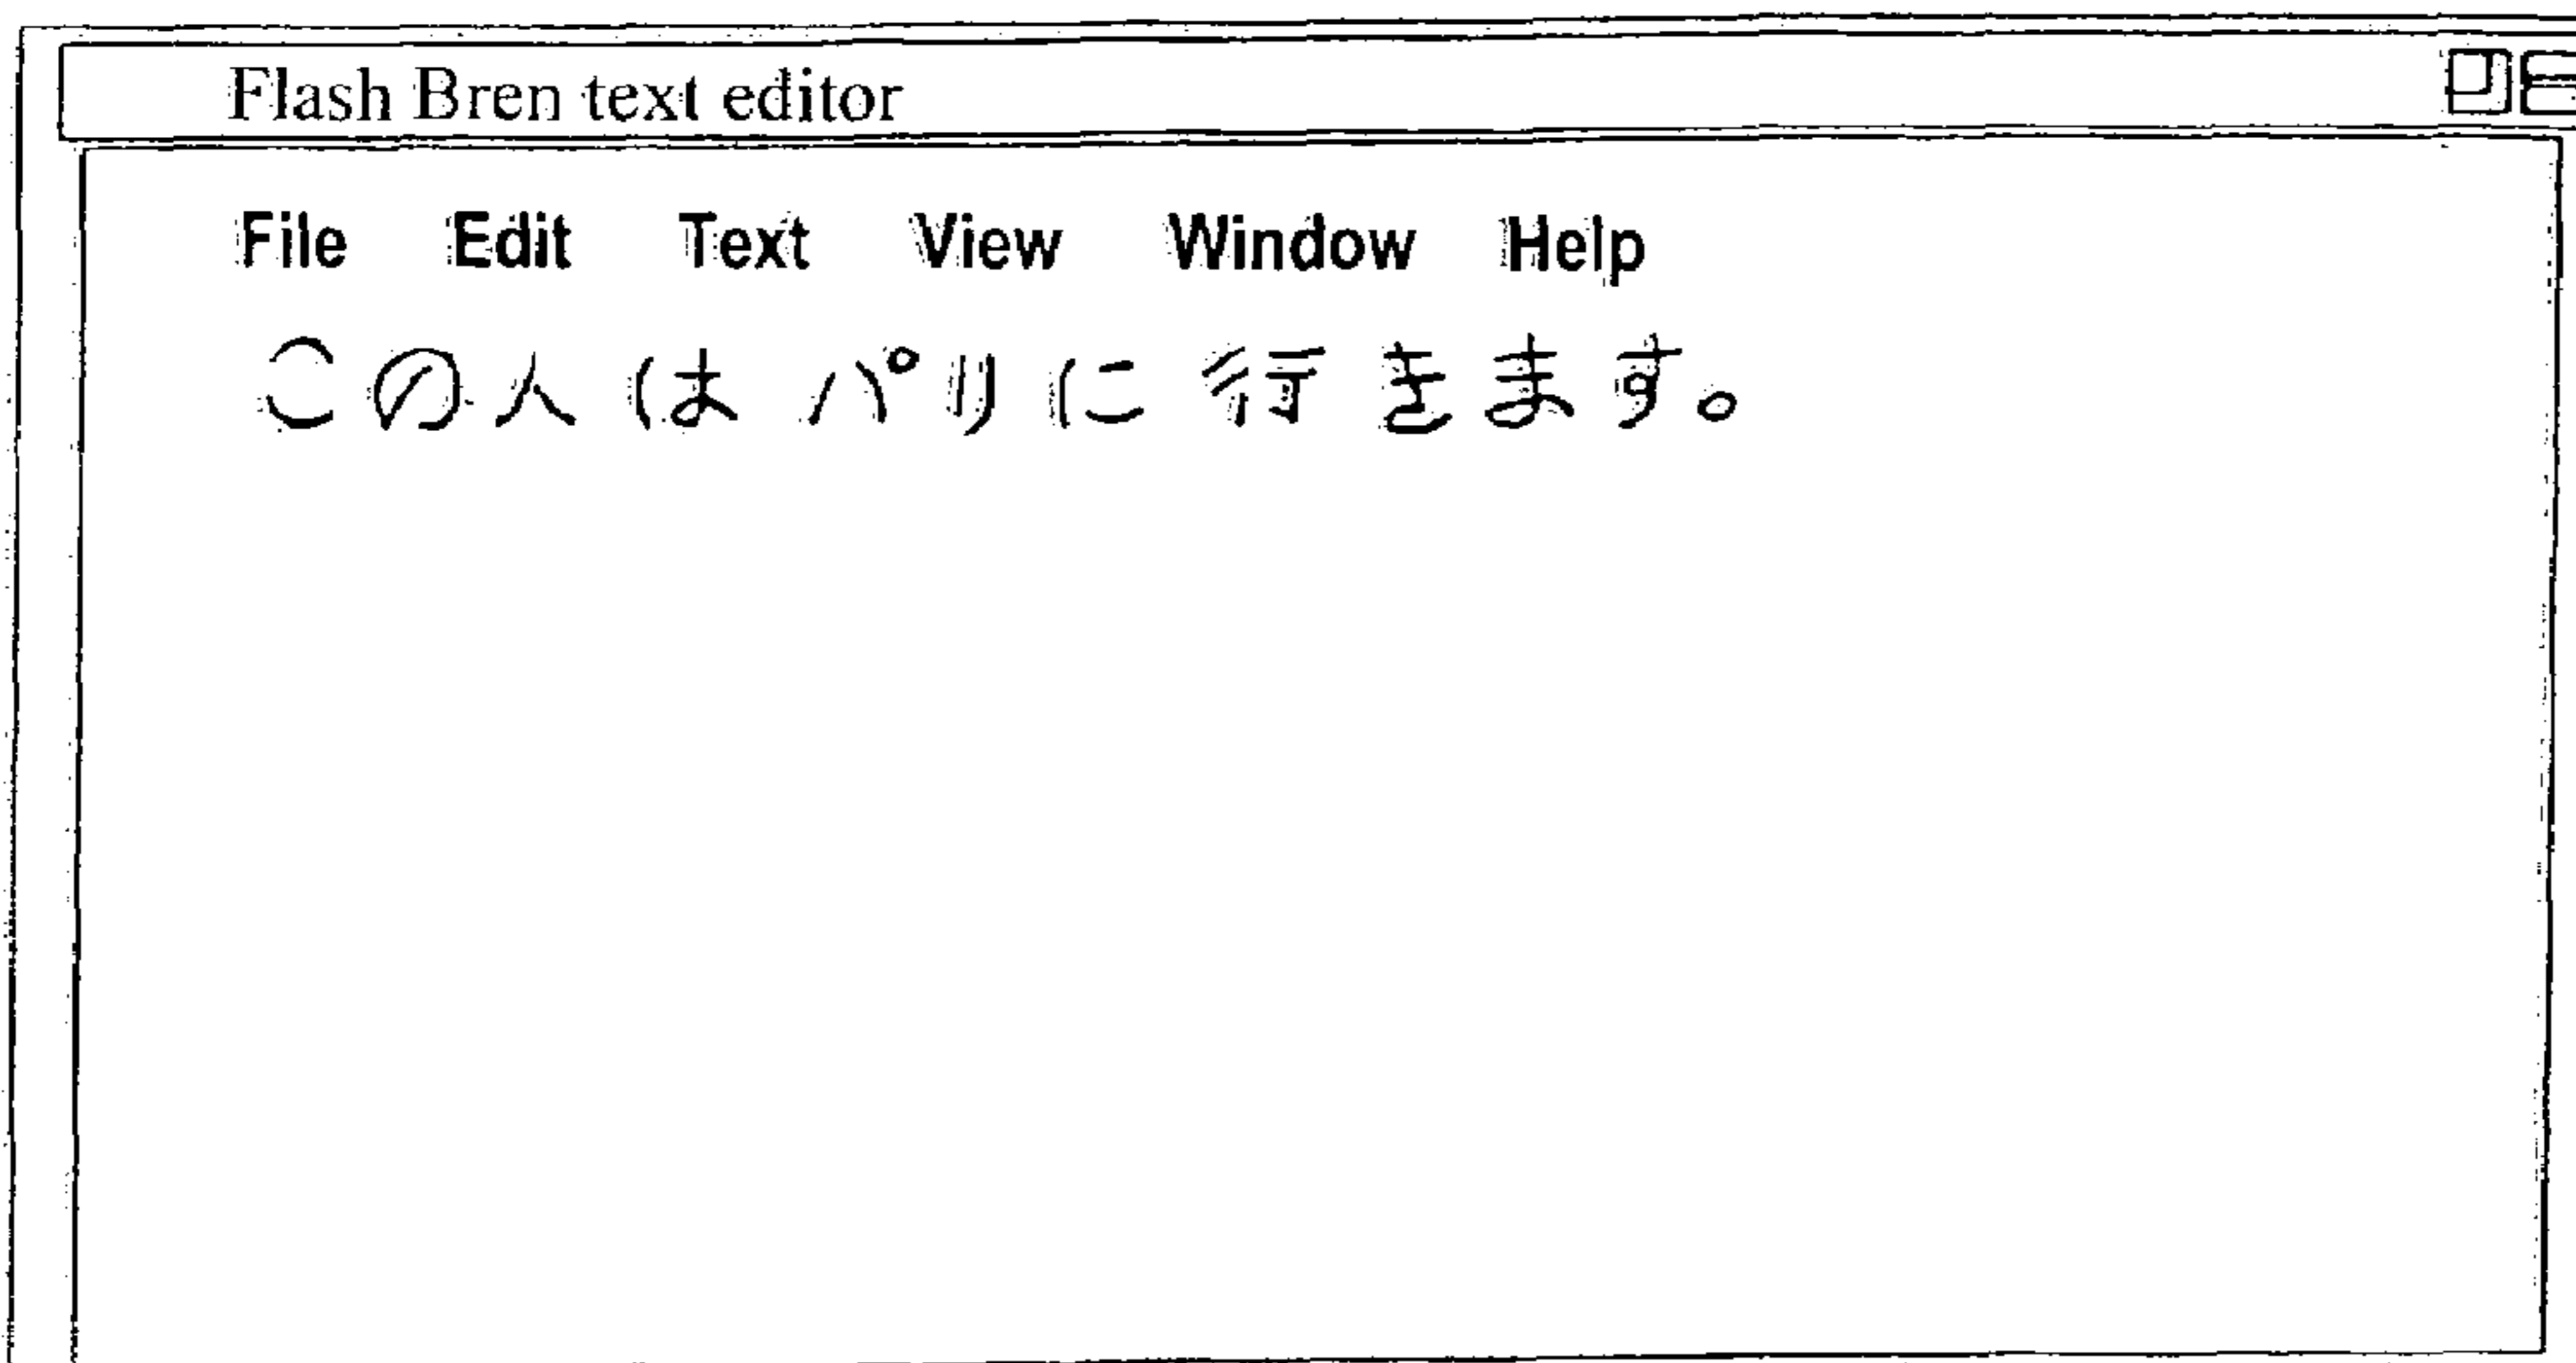 Flash Bren text editor
File Edit Text View Window Help
この人は パリに 行きます。